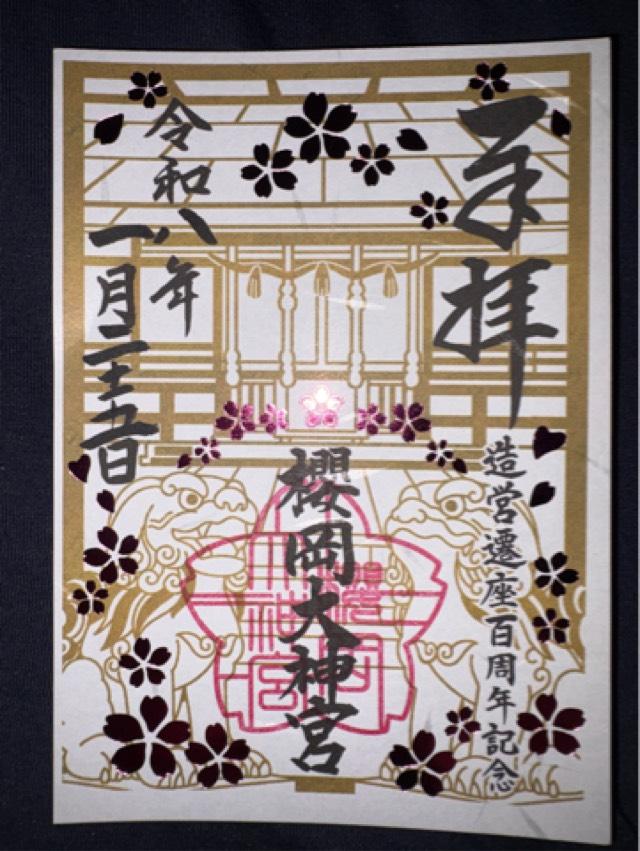 奉拝
造営遷座百周年記念
櫻岡大神宮
令和八年
一月二十五日